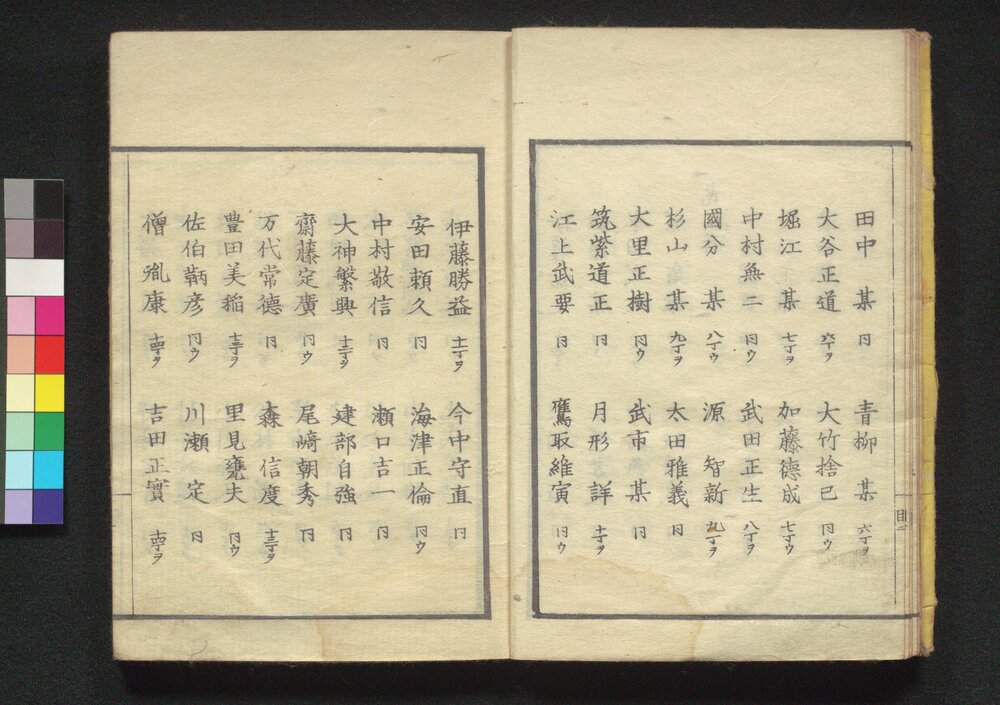 田中 某 冂 青柳 某 六丁ヲ
大谷正道 六丁ヲ 大竹捨已 冂ウ
堀江 某 七丁ヲ 加藤德成 七丁ウ
中村無二 冂ウ 武田正生 八丁ヲ
國分 某 八丁ウ 源 智新 九丁ヲ
杉山 某 九丁ヲ 太田雅義 冂
大里正樹 冂ウ 武市 某 冂
筑紫道正 冂 月形 詳 十丁ヲ
江上武要 冂 鷹取維寅 冂ウ
目二
伊藤勝益 十一丁ヲ 今中守直 冂
安田頼久 冂 海津正倫 冂ウ
中村敬信 冂 瀬口吉一 冂
大神繁興 十二丁ヲ 建部自強 冂
齋藤定廣 冂ウ 尾﨑朝秀 冂
万代常德 冂 森 信度 十三丁ヲ
豊田美稲 十三丁ヲ 里見甕夫 冂ウ
佐伯鞆彦 冂ウ 川瀬 定 冂
僧 胤康 十四丁ヲ 吉田正實 十四丁ヲ